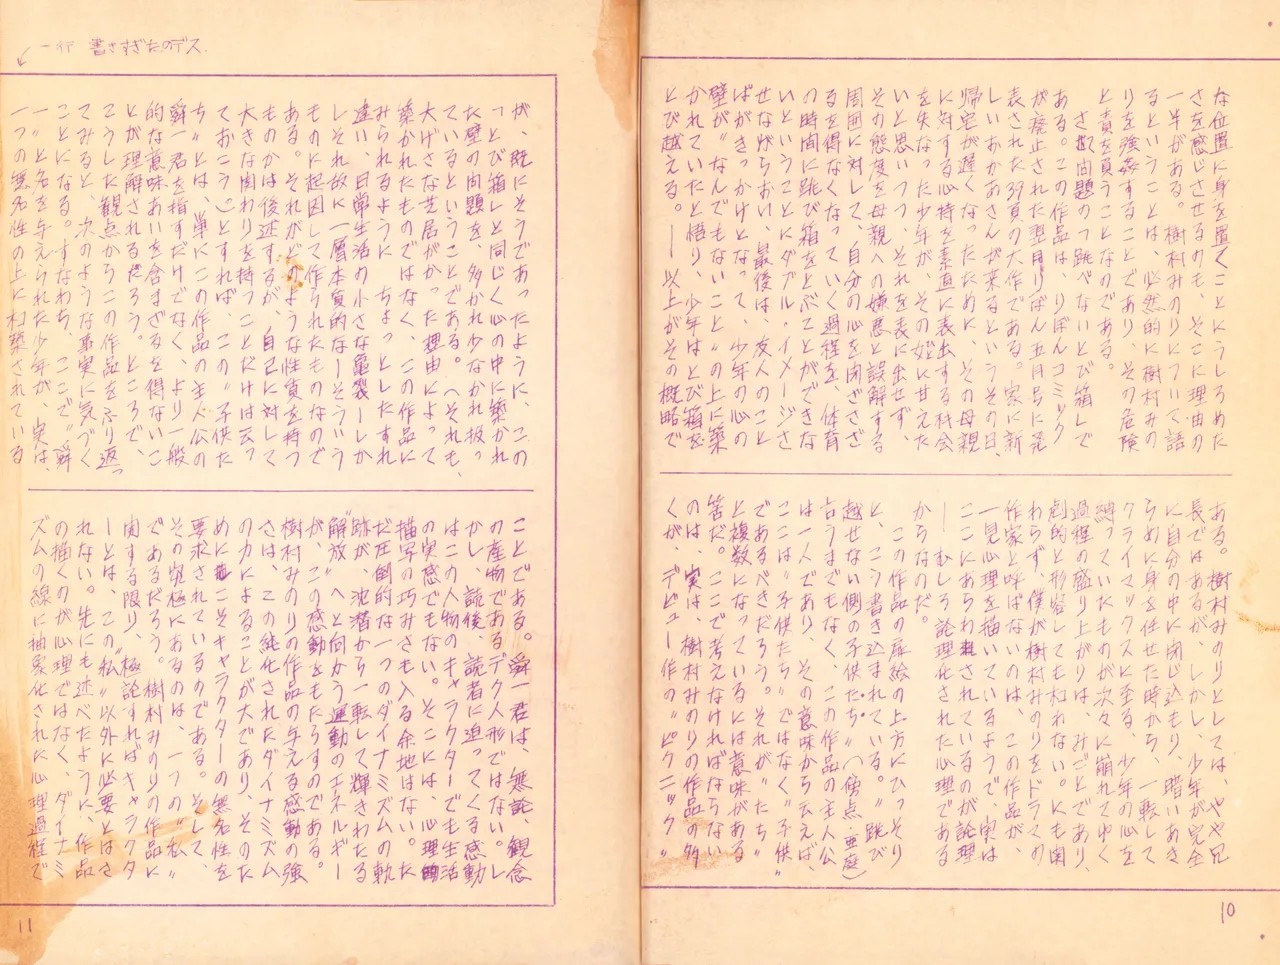 な位置に身を置くことにうしろめた
さを感じさせるのも、そこに理由の
一半がある。樹村みのりについて語
るということは、必然的に樹村みの
りを強姦することであり、その危険
と責を負うことなのである。
さて問題の「跳べないとび箱」で
ある。この作品は、りぼんコミック
が廃止された翌月りぼん五月号に発
表された39頁の大作である。家に新
しいおかあさんが来るというその日、
帰宅が遅くなったために、その母親
に対する心の持を素直に表出する機会
を失なった少年が、その姉に甘えた
いと思いつつ、それを表に出せず、
その態度を母親への嫌悪と誤解する
周囲に対して、自分の心を閉ざさざ
るを得なくなっていく過程を、体育
の時間に跳び箱をとぶことができな
いということにダブル・イメージさ
せながらおい、最後は、友人のこと
ばがきっかけとなって、少年の心の
壁が〝なんでもないこと〟の上に築
かれていたと悟り、少年はとび箱を
とび越える。——以上がその概略で
ある。樹村みのりとしては、やや冗
長ではあるが、しかし、少年が完全
に自分の中に閉じ込もり、暗いあき
らめに身を任せた時から、一転して
クライマックスに至る、少年の心を
縛っていたものが次々に崩れてゆく
過程の盛り上がりは、みごとであり、
劇的と形容しても構わない。にも関
わらず、僕が樹村みのりをドラマの
作家と呼ばないのは、この作品が、
一見心理を描いているようで、実は
ここにあらわれされているのが論理
——むしろ論理化された心理である
からなのだ。
この作品の扉絵の上方にひっそり
と、こう書き込まれている。〝跳び
越せない側の子供たち〟(傍点・亜庭)
言うまでもなく、この作品の主人公
は一人であり、その意味から云えば、
ここは〝子供たち〟ではなく〝子供〟
であるべきだろう。それが〝たち〟
と複数になっているには意味がある
筈だ。ここで考えなければならない
のは、実は、樹村みのりの作品の多
くが、デビュー作の〝ピクニック〟
10
一行 書きすぎたのデス.
が、既にそうであったように、この
「とび箱」と同じく心の中に築かれ
た壁の問題を、多かれ少なかれ扱っ
ているということである。へそれも、
大げさな芝居がかった理由によって
築かれたものではなく、この作品に
みられるように、ちょっとしたすれ
違い、日常生活の小さな亀裂——しか
しそれ故に一層本質的な——そういう
ものに起因して作られたものなので
ある。それがどのような性質を持つ
ものかは後述するが、自己に対して
大きな関わりを持つことだけは云っ
ておこう)とすれば、この〝子供た
ち〟とは、単にこの作品の主人公の
舜一君を指すだけでなく、より一般
的な意味あいを含まざるを得ないこ
とが理解されるだろう。ところで、
こうした観点からこの作品をふり返っ
てみると、次のような事実に気づく
ことになる。すなわち、ここで〝舜
一〟と名を与えられた少年が、実は、
一つの無名性の上に構築されている
ことである。舜一君は、無論、観念
の産物であるデク人形ではない。し
かし、読後、読者に迫ってくる感動
はこの人物のキャラクターでも生活
の実感でもない。そこには、心理的
描写の巧みさも入る余地はない。た
だ圧倒的な一つのダイナミズムの軌
跡が、沈潜から一転して輝きわたる
〝解放〟へと向かう運動のエネルギー
が、この感動をもたらすのである。
樹村みのりの作品の与える感動の強
さは、この純化されたダイナミズム
の力によることが大であり、そのた
めにこそキャラクターの無名性を
要求されているのである。そして、
その究極にあるのは、一つの〝私〟
であるだろう。樹村みのりの作品に
関する限り、極論すればキャラクタ
ーとは、この〝私〟以外に必要とはさ
れない。先にも述べたように、作品
の描くのが心理ではなく、ダイナミ
ズムの線に抽象化された心理過程で
11